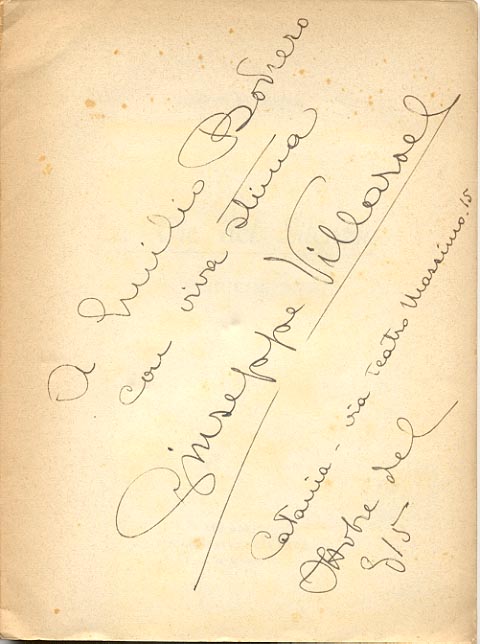 A Emilio Bodrero
con viva stima
Giuseppe Villaroel
Catania - via Teatro Massimo. 15
Ottobre del
915